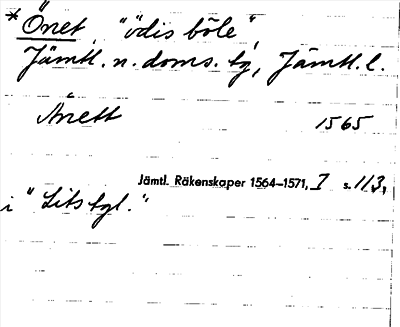 *Önet, "ödis böle",
Jämtl. n. doms. tg, Jämtl. l.
Ånett 1565
Jämtl. Räkenskaper 1564–1571, I s. 113,
i "Lits tgl."